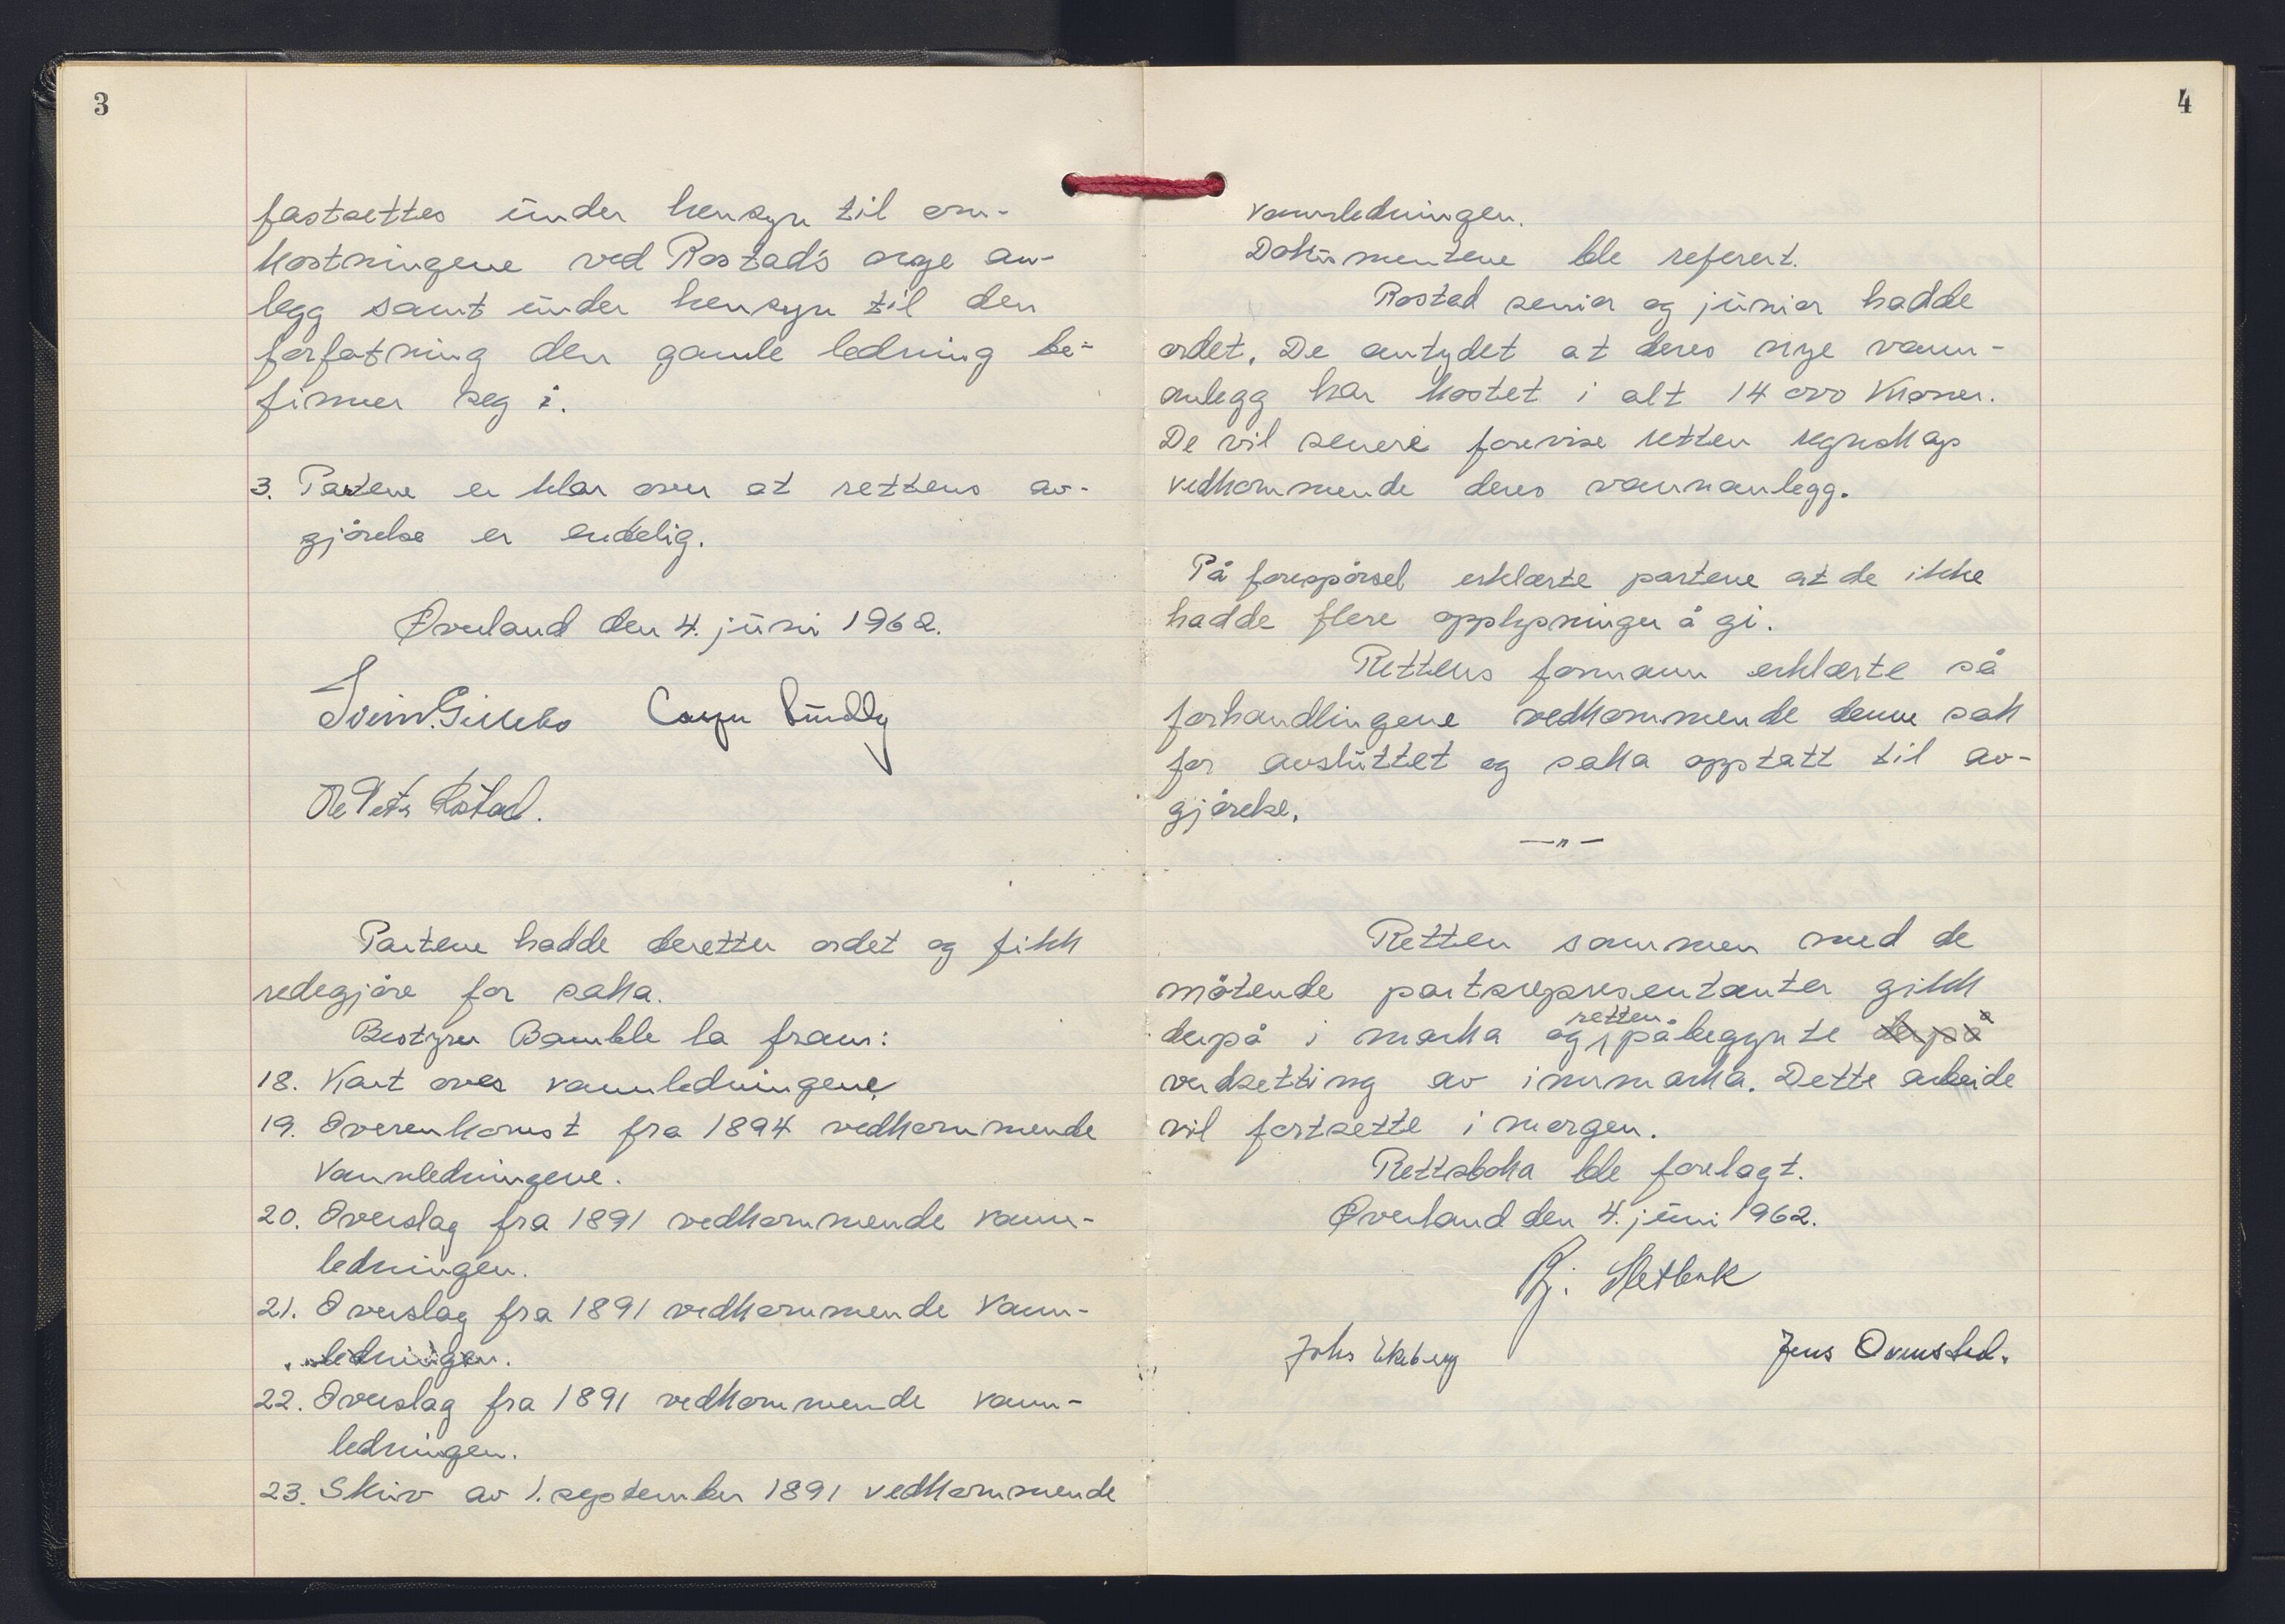 3
fastsettes under hensyn til om-
kostningene ved Rostad's nye an-
legg samt under hensyn til den
forfatning den gamle ledning be-
finner seg i.
3. Partene er klar over at rettens av-
gjörelse er endelig.
Överland den 4. juni 1962.
Svein
Ole Petr Rostad.
Partene hadde deretter ordet og fikk
redegjöre for saka.
Bestyrer Bamble la fram:
18. Kart over vannledningene
19. Overenkomst fra 1894 vedkommende
vannledningene.
20. Överslag fra 1891 vedkommende vann-
ledningen.
21. Överslag fra 1891 vedkommende vann-
ledningen.
22. Överslag fra 1891 vedkommende vann-
ledningen.
23. Skriv av 1. september 1891 vedkommende
4
vannledningen.
Dokumentene ble referert.
Rostad senior og junior hadde
ordet. De antydet at deres nye vann-
anlegg har kostet i alt 14 000 kroner.
De vil senere forevise retten regnskap
vedkommende deres vannanlegg.
På forespörsel erklærte partene at de ikke
hadde flere opplysninger å gi.
Rettens formann erklærte så
forhandlingene vedkommende denne sak
for avsluttet og saka opptatt til av-
gjörelse.
—"—
Retten sammen med de
mötende partsrepresentanter gikk
retten
derpå i marka og påbegynte derpå
verdsetting av innmarka. Dette arbeide
vil fortsette i morgen.
Rettsboka ble forelagt.
Överland den 4. juni 1962.
Sletbak
Johs Ekeberg
Jens Ovensted.